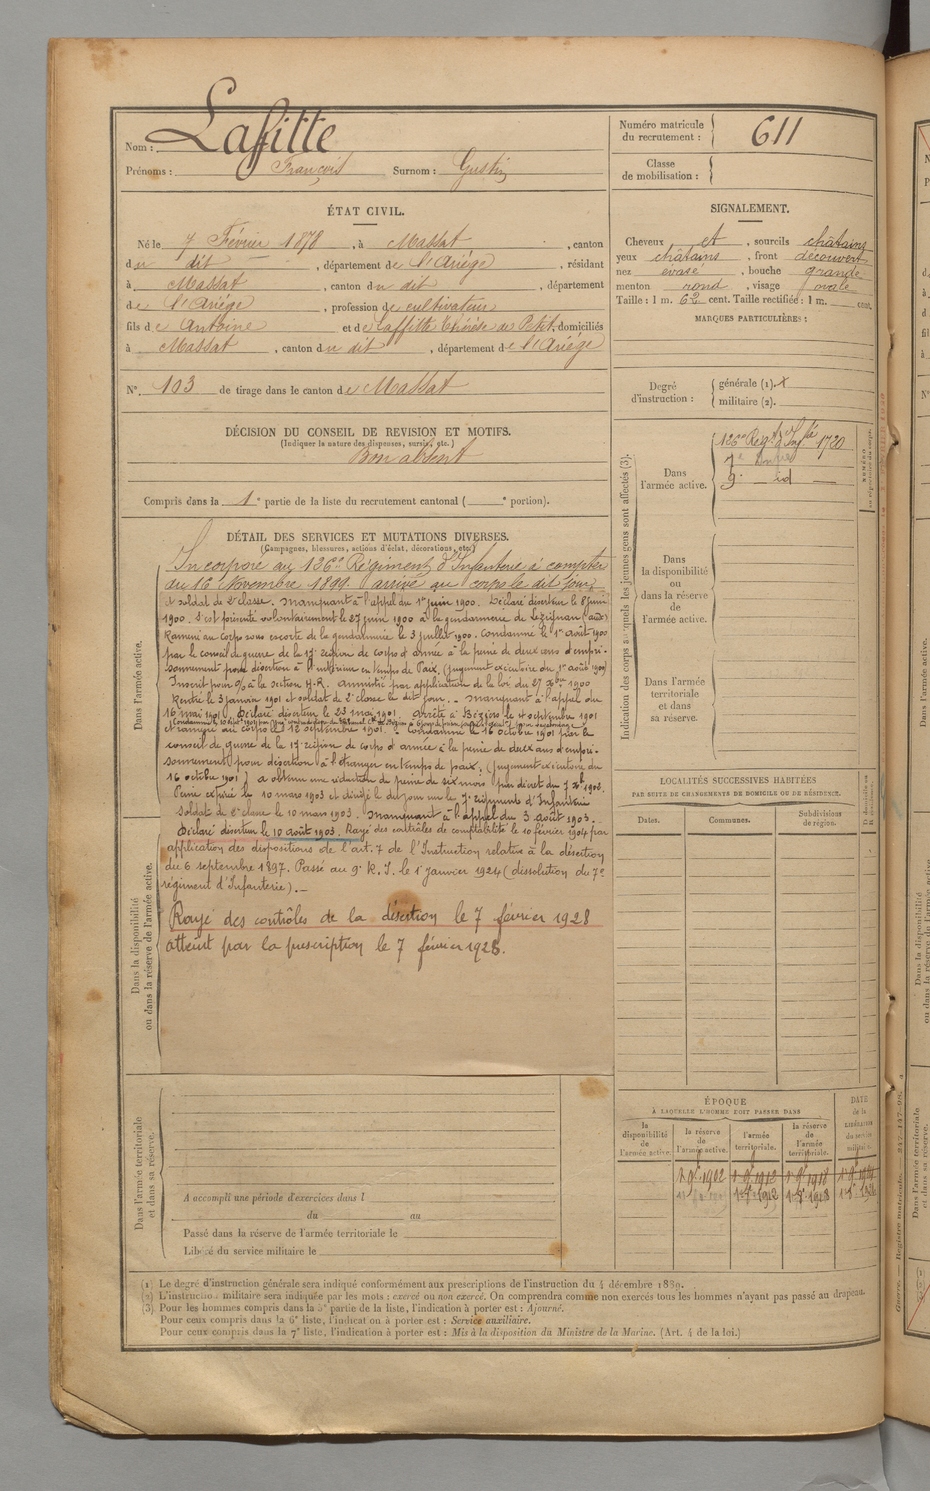 Nom : Lafitte
Prénoms : François Surnom : Gustin
Numéro matricule du recrutement : 611
Classe de mobilisation :
ÉTAT CIVIL.
Né le 7 Février 1878, à Massat, canton
du dit, département de l'Ariège, résidant
à Massat, canton du dit, département
de l'Ariège, profession de cultivateur
fils de Antoine et de Laffitte Thérèse de Petit, domiciliés
à Massat, canton du dit, département de l'Ariège
N° 103 de tirage dans le canton de Massat
SIGNALEMENT.
Cheveux et, sourcils châtains
yeux châtains, front découvert
nez évasé, bouche grande
menton rond, visage ovale
Taille : 1 m. 62 cent. Taille rectifiée : 1 m. cent.
MARQUES PARTICULIÈRES :
Degré d'instruction : générale (1). X
militaire (2).
DÉCISION DU CONSEIL DE REVISION ET MOTIFS.
(Indiquer la nature des dispenses, sursis, etc.)
Bon absent
Compris dans la 1e partie de la liste du recrutement cantonal ( e portion).
DÉTAIL DES SERVICES ET MUTATIONS DIVERSES.
(Campagnes, blessures, actions d'éclat, décorations, etc.)
Dans l'armée active.
Incorporé au 126e Régiment d'Infanterie à compter
du 16 Novembre 1899 arrivé au corps le dit jour,
et soldat de 2e classe. Manquant à l'appel du 1er juin 1900. Déclaré déserteur le 8 juin
1900. S'est présenté volontairement le 27 juin 1900 à la gendarmerie de Lézignan (Aude)
Ramené au Corps sous escorte de la gendarmerie le 3 juillet 1900. Condamné le 1er août 1900
par le conseil de guerre de la 17e région de corps d'armée à la peine de deux ans d'empri-
sonnement pour désertion à l'intérieur en temps de Paix, (jugement exécutoire du 1er août 1900)
Inscrit pour % à la section H.R. Amnistié par application de la loi du 27 Xbre 1900
Rentré le 3 janvier 1901 et soldat de 2e classe le dit jour. - Manquant à l'appel du
16 mai 1901. Déclaré déserteur le 23 mai 1901. Arrêté à Béziers le 4 septembre 1901
et ramené au corps le 12 septembre 1901. - Condamné le 16 octobre 1901 par le
conseil de guerre de la 17e région de corps d'armée à la peine de deux ans d'empri-
sonnement pour désertion à l'étranger en temps de paix. (jugement exécutoire du
16 octobre 1901) a obtenu une réduction de peine de six mois par décret du 7 Xbre 1902.
Peine expirée le 10 mars 1903 et dirigé le dit jour sur le 7e régiment d'Infanterie
Soldat de 2e classe le 10 mars 1903. Manquant à l'appel du 3 août 1903.
Déclaré déserteur le 10 août 1903. Rayé des contrôles de comptabilité le 10 février 1904 par
application des dispositions de l'art. 7 de l'Instruction relative à la désertion
du 6 septembre 1897. Passé au 9e R. I. le 1er janvier 1924 (dissolution du 7e
régiment d'Infanterie). -
Dans la disponibilité ou dans la réserve de l'armée active.
Rayé des contrôles de la désertion le 7 février 1928
atteint par la prescription le 7 février 1928.
Indication des corps auxquels les jeunes gens sont affectés (3).
Dans l'armée active.
126e Régt d'Infie 1720
7e
9e id
Dans la disponibilité ou dans la réserve de l'armée active.
Dans l'armée territoriale et dans sa réserve.
LOCALITÉS SUCCESSIVES HABITÉES
PAR SUITE DE CHANGEMENTS DE DOMICILE OU DE RÉSIDENCE.
Dates. Communes. Subdivisions de région.
ÉPOQUE
À LAQUELLE L'HOMME DOIT PASSER DANS
la disponibilité de l'armée active.
la réserve de l'armée active.
l'armée territoriale.
la réserve de l'armée territoriale.
DATE de la LIBÉRATION du service militaire.
Dans l'armée territoriale et dans sa réserve.
A accompli une période d'exercices dans l
du au
Passé dans la réserve de l'armée territoriale le
Libéré du service militaire le
(1) Le degré d'instruction générale sera indiqué conformément aux prescriptions de l'instruction du 4 décembre 1889.
(2) L'instruction militaire sera indiquée par les mots : exercé ou non exercé. On comprendra comme non exercés tous les hommes n'ayant pas passé au drapeau.
(3) Pour les hommes compris dans la 5e partie de la liste, l'indication à porter est : Ajourné.
Pour ceux compris dans la 6e liste, l'indication à porter est : Service auxiliaire.
Pour ceux compris dans la 7e liste, l'indication à porter est : Mis à la disposition du Ministre de la Marine. (Art. 4 de la loi.)